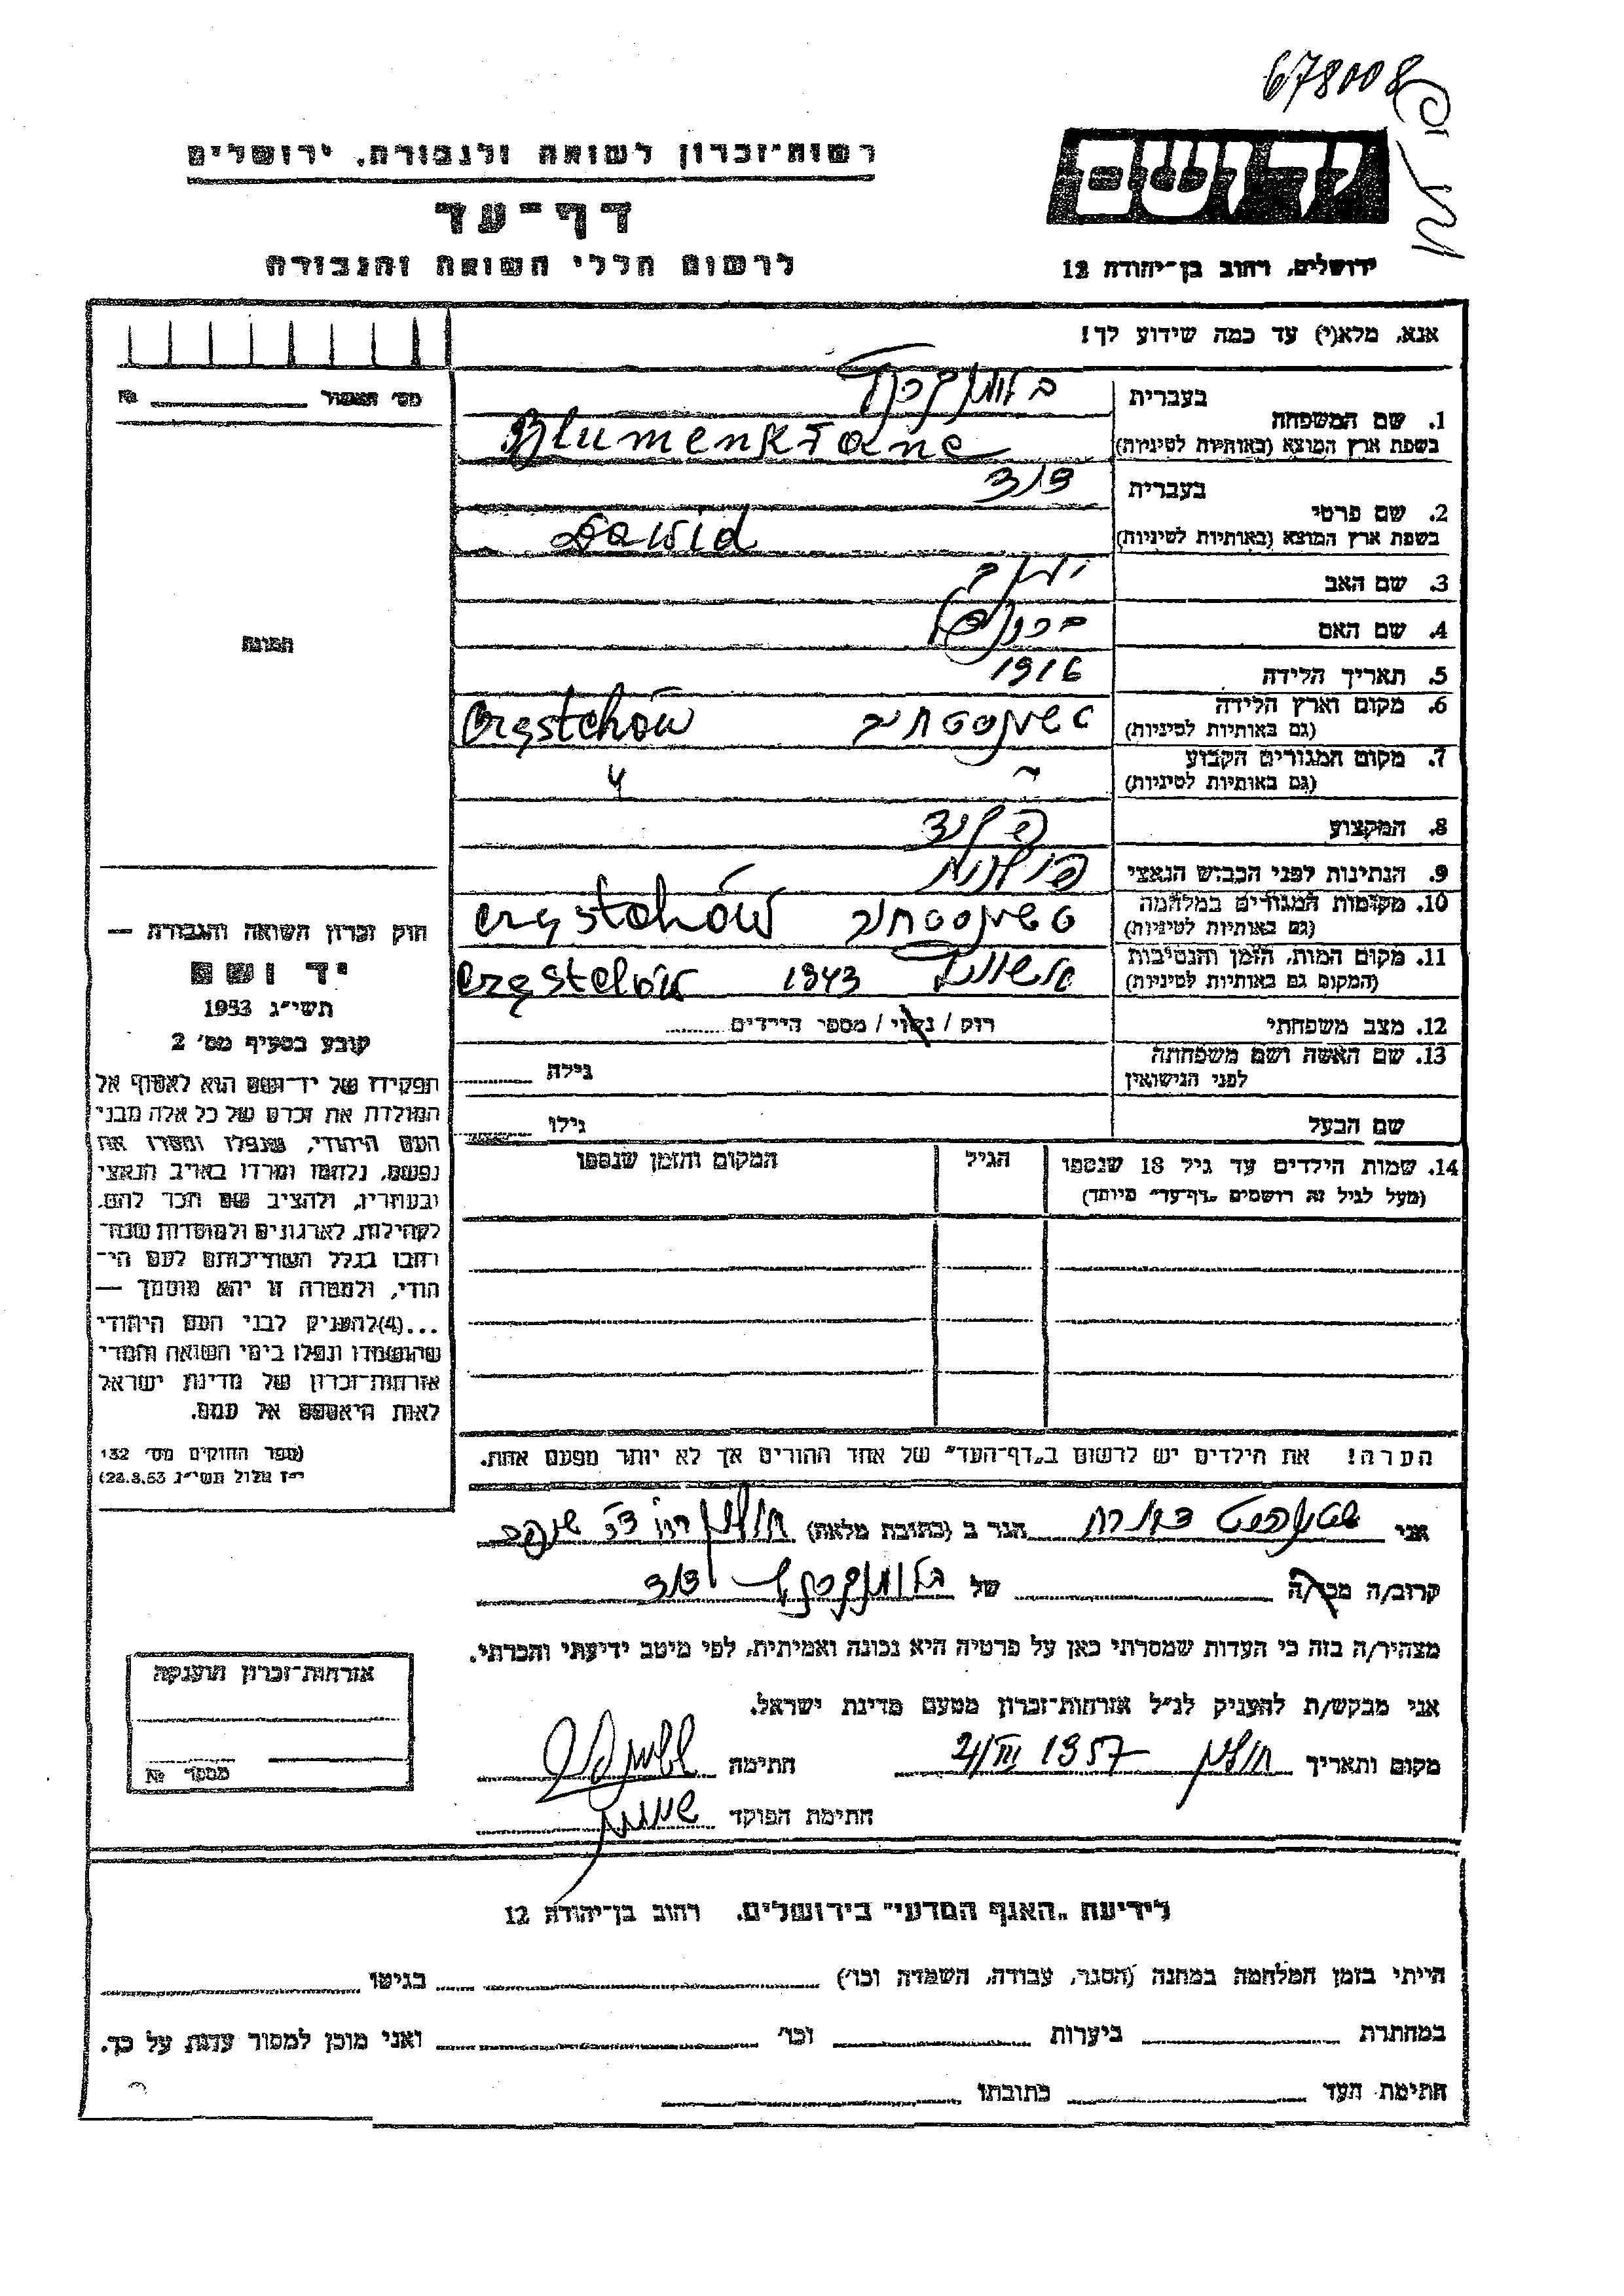 678008
רשות-זכרון לשואה ולגבורה, ירושלים
דף-עד
לרשום חללי השואה והגבורה
ידושם
ירושלים, רחוב בן-יהודה 12
אנא, מלא(י) עד כמה שידוע לך!
מס' האשור № 
1. שם המשפחה
בעברית
בשפת ארץ המוצא (באותיות לטיניות) Blumenkranc
2. שם פרטי
בעברית דוד
בשפת ארץ המוצא (באותיות לטיניות) Dawid
3. שם האב
4. שם האם
5. תאריך הלידה 1916
6. מקום וארץ הלידה
(גם באותיות לטיניות) Częstchów
7. מקום המגורים הקבוע
(גם באותיות לטיניות)
8. המקצוע
9. הנתינות לפני הכבוש הנאצי פולנית
10. מקומות המגורים במלחמה
(גם באותיות לטיניות) Częstchów
11. מקום המות, הזמן והנסיבות
(המקום גם באותיות לטיניות) 1943 Częstchów
12. מצב משפחתי רווק / נשוי / מספר הילדים
13. שם האשה ושם משפחתה
לפני הנישואין גילה
שם הבעל גילו
14. שמות הילדים עד גיל 18 שנספו הגיל המקום והזמן שנספו
(מעל לגיל זה רושמים „דף-עד" מיוחד)
הערה! את הילדים יש לרשום ב„דף-העד" של אחד ההורים אך לא יותר מפעם אחת.
תמונה
חוק זכרון השואה והגבורה —
יד ושם
תשי"ג 1953
קובע בסעיף מס' 2
תפקידו של יד-ושם הוא לאסוף אל
המולדת את זכרם של כל אלה מבני
העם היהודי, שנפלו ומסרו את
נפשם, נלחמו ומרדו באויב הנאצי
ובעוזריו, ולהציב שם וזכר להם,
לקהילות, לארגונים ולמוסדות שנח-
רחבו בגלל השתייכותם לעם הי-
הודי, ולמטרה זו יהא מוסמך —
...(4)להעניק לבני העם היהודי
שהושמדו ונפלו בימי השואה והמרי
אזרחות-זכרון של מדינת ישראל
לאות היאספם אל עמם.
(ספר החוקים מס' 132
י"ז אלול תשי"ג 28.8.53)
אני הגר ב (כתובת מלאה) חולון
קרוב/ה מכר/ה של דוד
מצהיר/ה בזה כי העדות שמסרתי כאן על פרטיה היא נכונה ואמיתית, לפי מיטב ידיעתי והכרתי.
אני מבקש/ת להעניק לנ"ל אזרחות-זכרון מטעם מדינת ישראל.
מקום ותאריך חולון 21/III 1957 חתימה
חתימת הפוקד
אזרחות-זכרון הוענקה
מספר №
לידיעת „האגף המדעי" בירושלים, רחוב בן-יהודה 12
הייתי בזמן המלחמה במחנה (הסגר, עבודה, השמדה וכו') בגיטו
במחתרת ביערות וכו' ואני מוכן למסור עדות על כך.
חתימת העד כתובתו